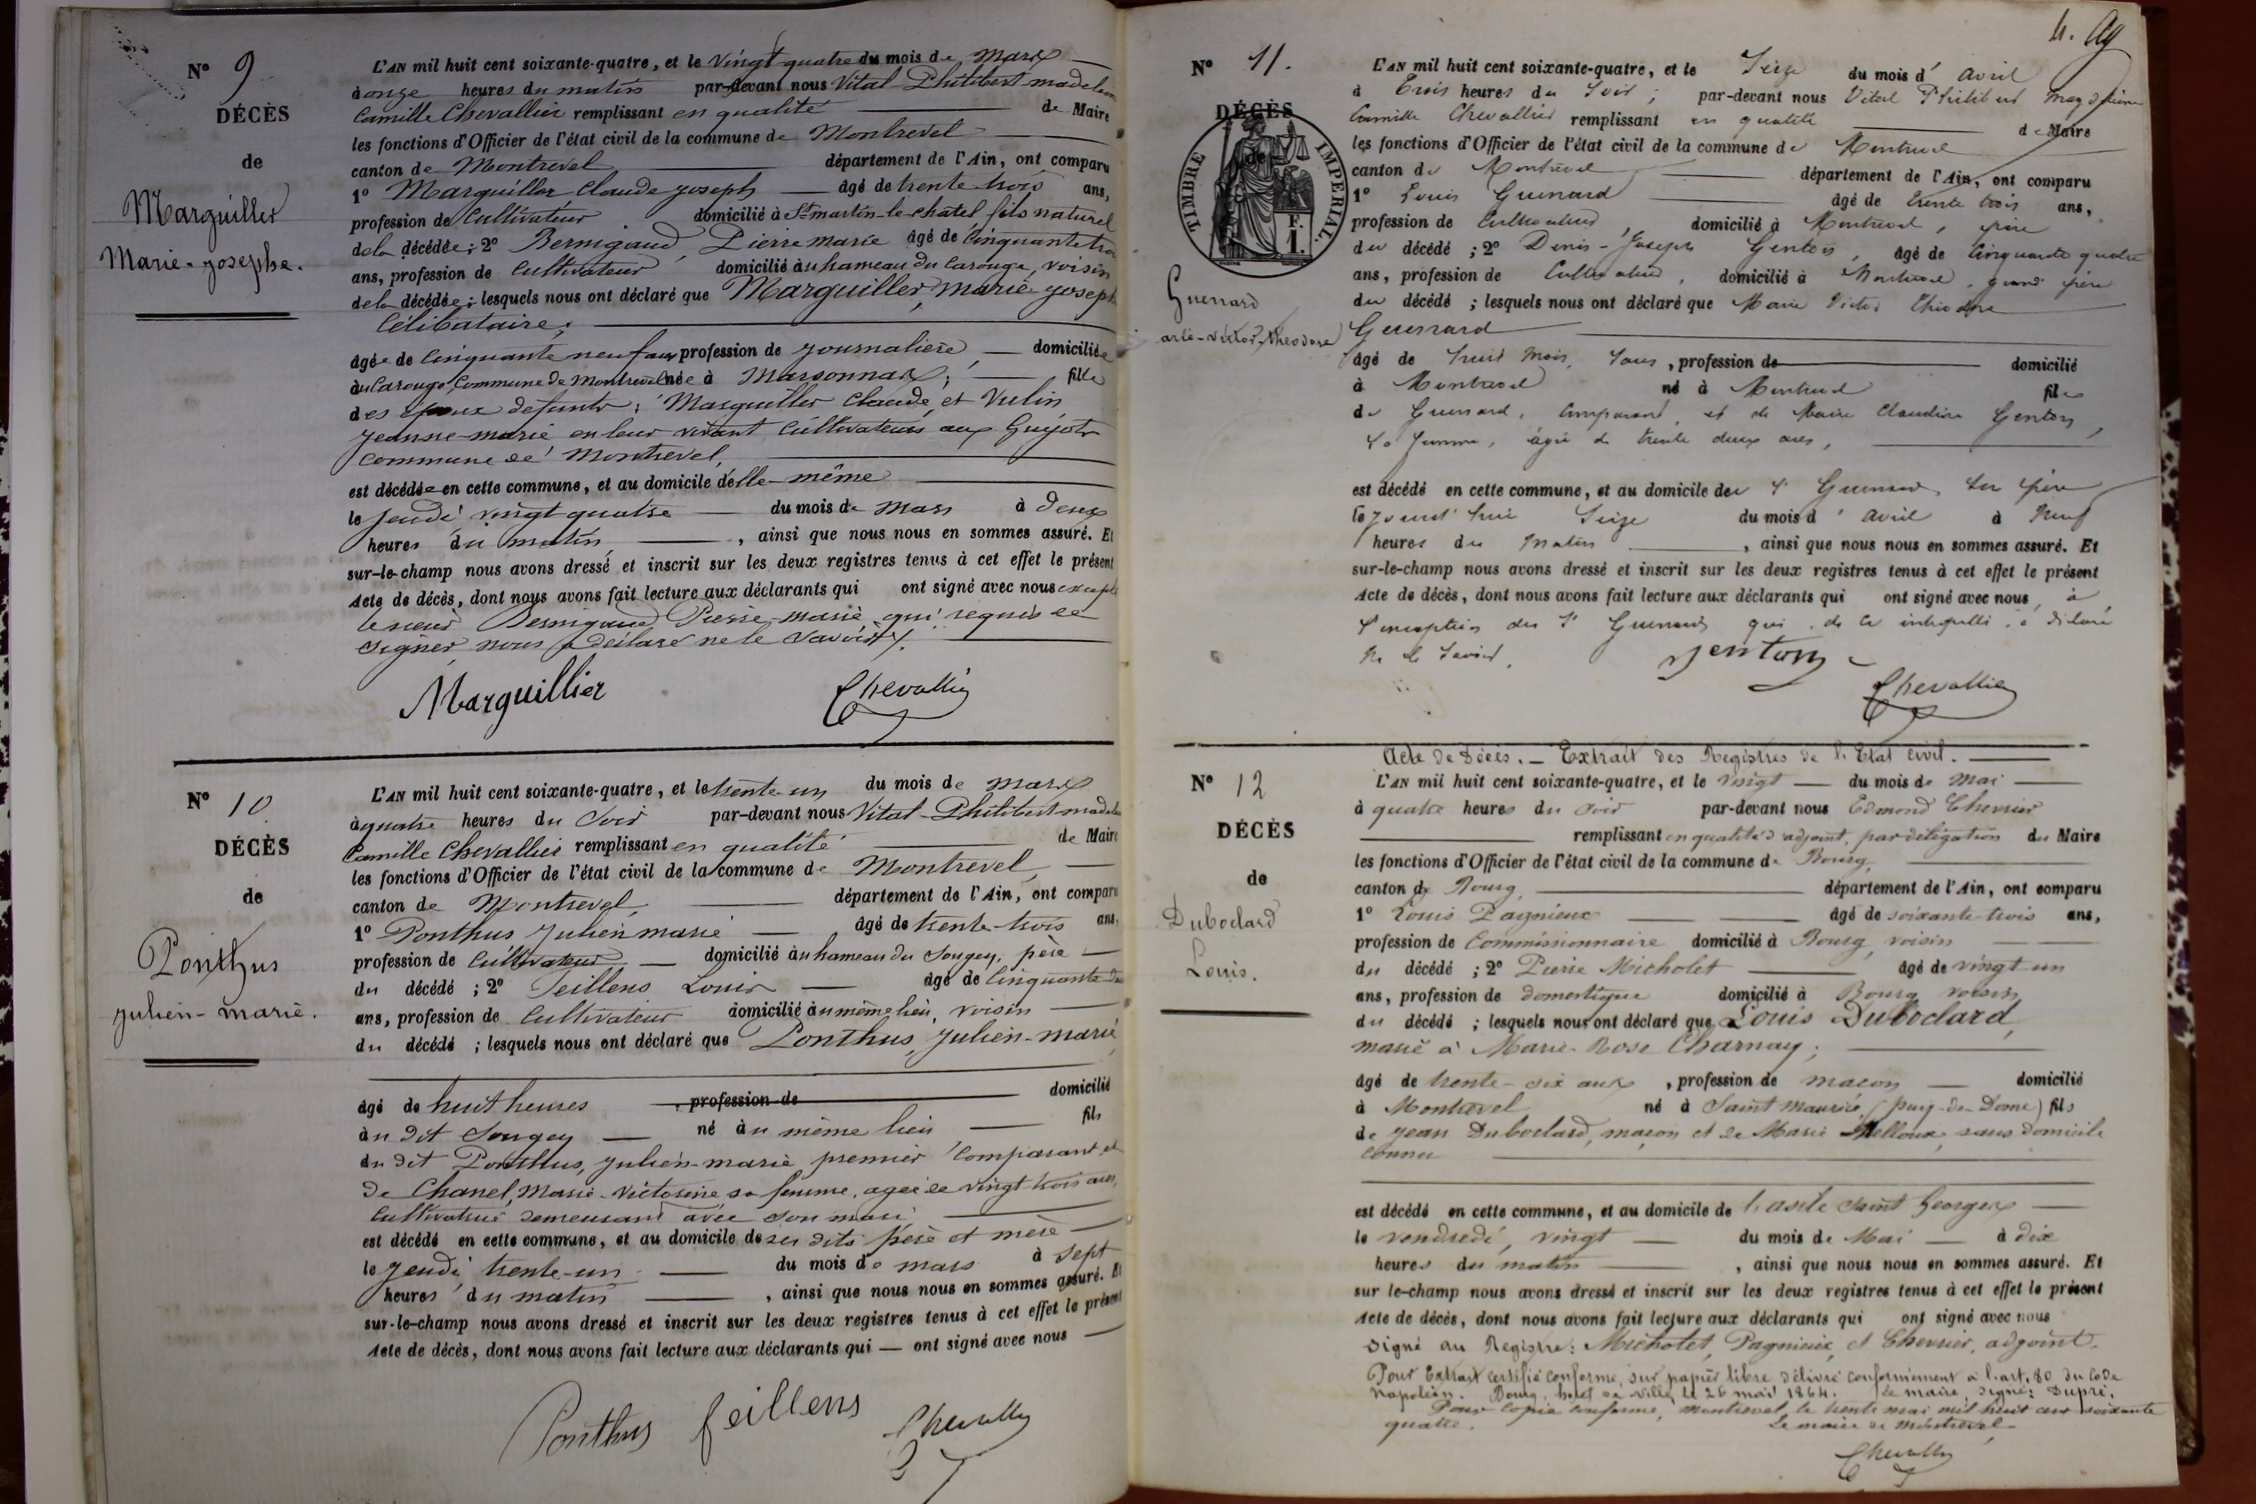 N° 9
DÉCÈS
de
Marguiller
Marie-josephe.
L'AN mil huit cent soixante-quatre, et le vingt quatre du mois de Mars
à onze heures du matin par-devant nous Vital Philibert madelein
Camille Chevallier remplissant en qualité de Maire
les fonctions d'Officier de l'état civil de la commune de Montrevel
canton de Montrevel département de l'Ain, ont comparu
1° Marguiller Claude joseph âgé de trente trois ans,
profession de Cultivateur domicilié à St martin-le-châtel fils naturel
de la décédée ; 2° Bernigaud Pierre marie âgé de Cinquante trois
ans, profession de Cultivateur domicilié au hameau du Carouge, voisin
de la décédée ; lesquels nous ont déclaré que Marguiller, Marie joseph
Célibataire,
âgée de Cinquante neuf ans profession de journalière domiciliée
au Carouge, Commune de Montrevel née à Marsonnax, fille
des époux defunts : Marguiller Claude et Vulin
jeanne-marie en leur vivant Cultivateurs aux Guyots
Commune de Montrevel,
est décédée en cette commune, et au domicile d'elle-même
le jeudi vingt quatre du mois de Mars à deux
heures du matin , ainsi que nous nous en sommes assuré. Et
sur-le-champ nous avons dressé et inscrit sur les deux registres tenus à cet effet le présent
Acte de décès, dont nous avons fait lecture aux déclarants qui ont signé avec nous excepté
le sieur Bernigaud Pierre-marie qui requis de
signer nous a déclaré ne le savoir.
Marguillier Chevallier
N° 10
DÉCÈS
de
Ponthus
julien-marie.
L'AN mil huit cent soixante-quatre, et le trente-un du mois de mars
à quatre heures du soir par-devant nous Vital-Philibert madelei
Camille Chevallier remplissant en qualité de Maire
les fonctions d'Officier de l'état civil de la commune de Montrevel,
canton de Montrevel, département de l'Ain, ont comparu
1° Ponthus julien marie âgé de trente-trois ans,
profession de Cultivateur domicilié au hameau du Sougey, père
du décédé ; 2° Feillens Louis âgé de Cinquante
ans, profession de Cultivateur domicilié au même lieu, voisin
du décédé ; lesquels nous ont déclaré que Ponthus, julien-marie
âgé de huit heures , profession de domicilié
au dit Sougey né au même lieu fils
du dit Ponthus, julien-marie premier Comparant et
de Chanel, Marie-victorine sa femme, agée de vingt trois ans,
Cultivatrice demeurant avec son mari
est décédé en cette commune, et au domicile de ses dits père et mère
le jeudi trente-un du mois de mars à sept
heures du matin , ainsi que nous nous en sommes assuré. Et
sur-le-champ nous avons dressé et inscrit sur les deux registres tenus à cet effet le présent
Acte de décès, dont nous avons fait lecture aux déclarants qui ont signé avec nous
Ponthus feillens Chevallier
4.
N° 11.
DÉCÈS
de
TIMBRE IMPERIAL.
F.
1.
Guenard
arie-victor-theodore
L'AN mil huit cent soixante-quatre, et le Seize du mois d' avril
à Trois heures du Soir ; par-devant nous Vital Philibert Magdeleine
Camille Chevallier remplissant en qualité de Maire
les fonctions d'Officier de l'état civil de la commune de Montrevel
canton de Montrevel département de l'Ain, ont comparu
1° Louis Guenard âgé de trente trois ans,
profession de Cultivateur, domicilié à Montrevel, père
du décédé ; 2° Denis-Joseph Genton, âgé de Cinquante quatre
ans, profession de Cultivateur, domicilié à Montrevel, grand père
du décédé ; lesquels nous ont déclaré que Marie Victor Théodore
Guenard
âgé de huit mois, , profession de domicilié
à Montrevel né à Montrevel fils
de Guenard, Comparant, et de Marie Claudine Genton,
Sa femme, âgée de trente deux ans,
est décédé en cette commune, et au domicile de Sr Guenard, Son père
le jourd'hui Seize du mois d' avril à Neuf
heures du Matin , ainsi que nous nous en sommes assuré. Et
sur-le-champ nous avons dressé et inscrit sur les deux registres tenus à cet effet le présent
Acte de décès, dont nous avons fait lecture aux déclarants qui ont signé avec nous, à
l'exception du Sr Guenard qui, de ce interpellé, a déclaré
ne le Savoir.
Genton
Chevallier
N° 12
DÉCÈS
de
Duboclard
Louis.
Acte de Décès. — Extrait des Registres de l'Etat civil.
L'AN mil huit cent soixante-quatre, et le vingt du mois de mai
à quatre heures du soir par-devant nous Edmond Chevrier
remplissant en qualité d'adjoint, par délégation du Maire
les fonctions d'Officier de l'état civil de la commune de Bourg,
canton de Bourg, département de l'Ain, ont comparu
1° Louis Pagnieux âgé de soixante-trois ans,
profession de Commissionnaire domicilié à Bourg, voisin
du décédé ; 2° Pierre Micholet âgé de vingt-un
ans, profession de domestique domicilié à Bourg voisin
du décédé ; lesquels nous ont déclaré que Louis Duboclard,
marié à Marie-Rose Charnay ;
âgé de trente-six ans , profession de maçon domicilié
à Montrevel né à Saint Maurice (puy-de-Dome) fils
de jean Duboclard, maçon et de Marie Melloux, sans domicile
connu
est décédé en cette commune, et au domicile de l'asile Saint Georges
le vendredi, vingt du mois de Mai à dix
heures du matin , ainsi que nous nous en sommes assuré. Et
sur le-champ nous avons dressé et inscrit sur les deux registres tenus à cet effet le présent
Acte de décès, dont nous avons fait lecture aux déclarants qui ont signé avec nous
Signé au Registre : Micholet, Pagnieux, et Chevrier, adjoint.
Pour Extrait certifié conforme, sur papier libre délivré conformément à l'art. 80 du Code
Napoléon. Bourg, hotel de ville, le 26 mai 1864. Le maire, signé : Dupré.
Pour Copie conforme, Montrevel, le trente mai mil huit cent soixante
quatre. Le maire de Montrevel
Chevallier